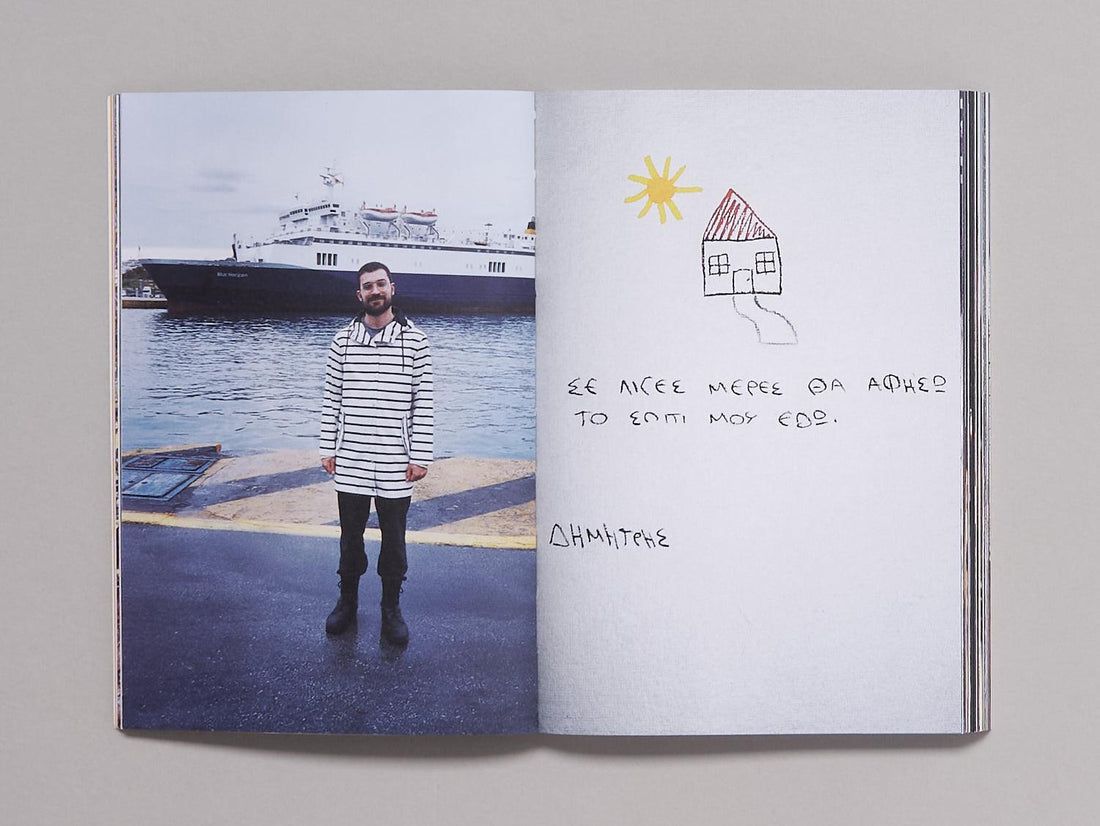 Blue Horizon
ΣΕ ΛΙΓΕΣ ΜΕΡΕΣ ΘΑ ΑΦΗΣΩ
ΤΟ ΣΠΙΤΙ ΜΟΥ ΕΔΩ.
ΔΗΜΗΤΡΗΣ